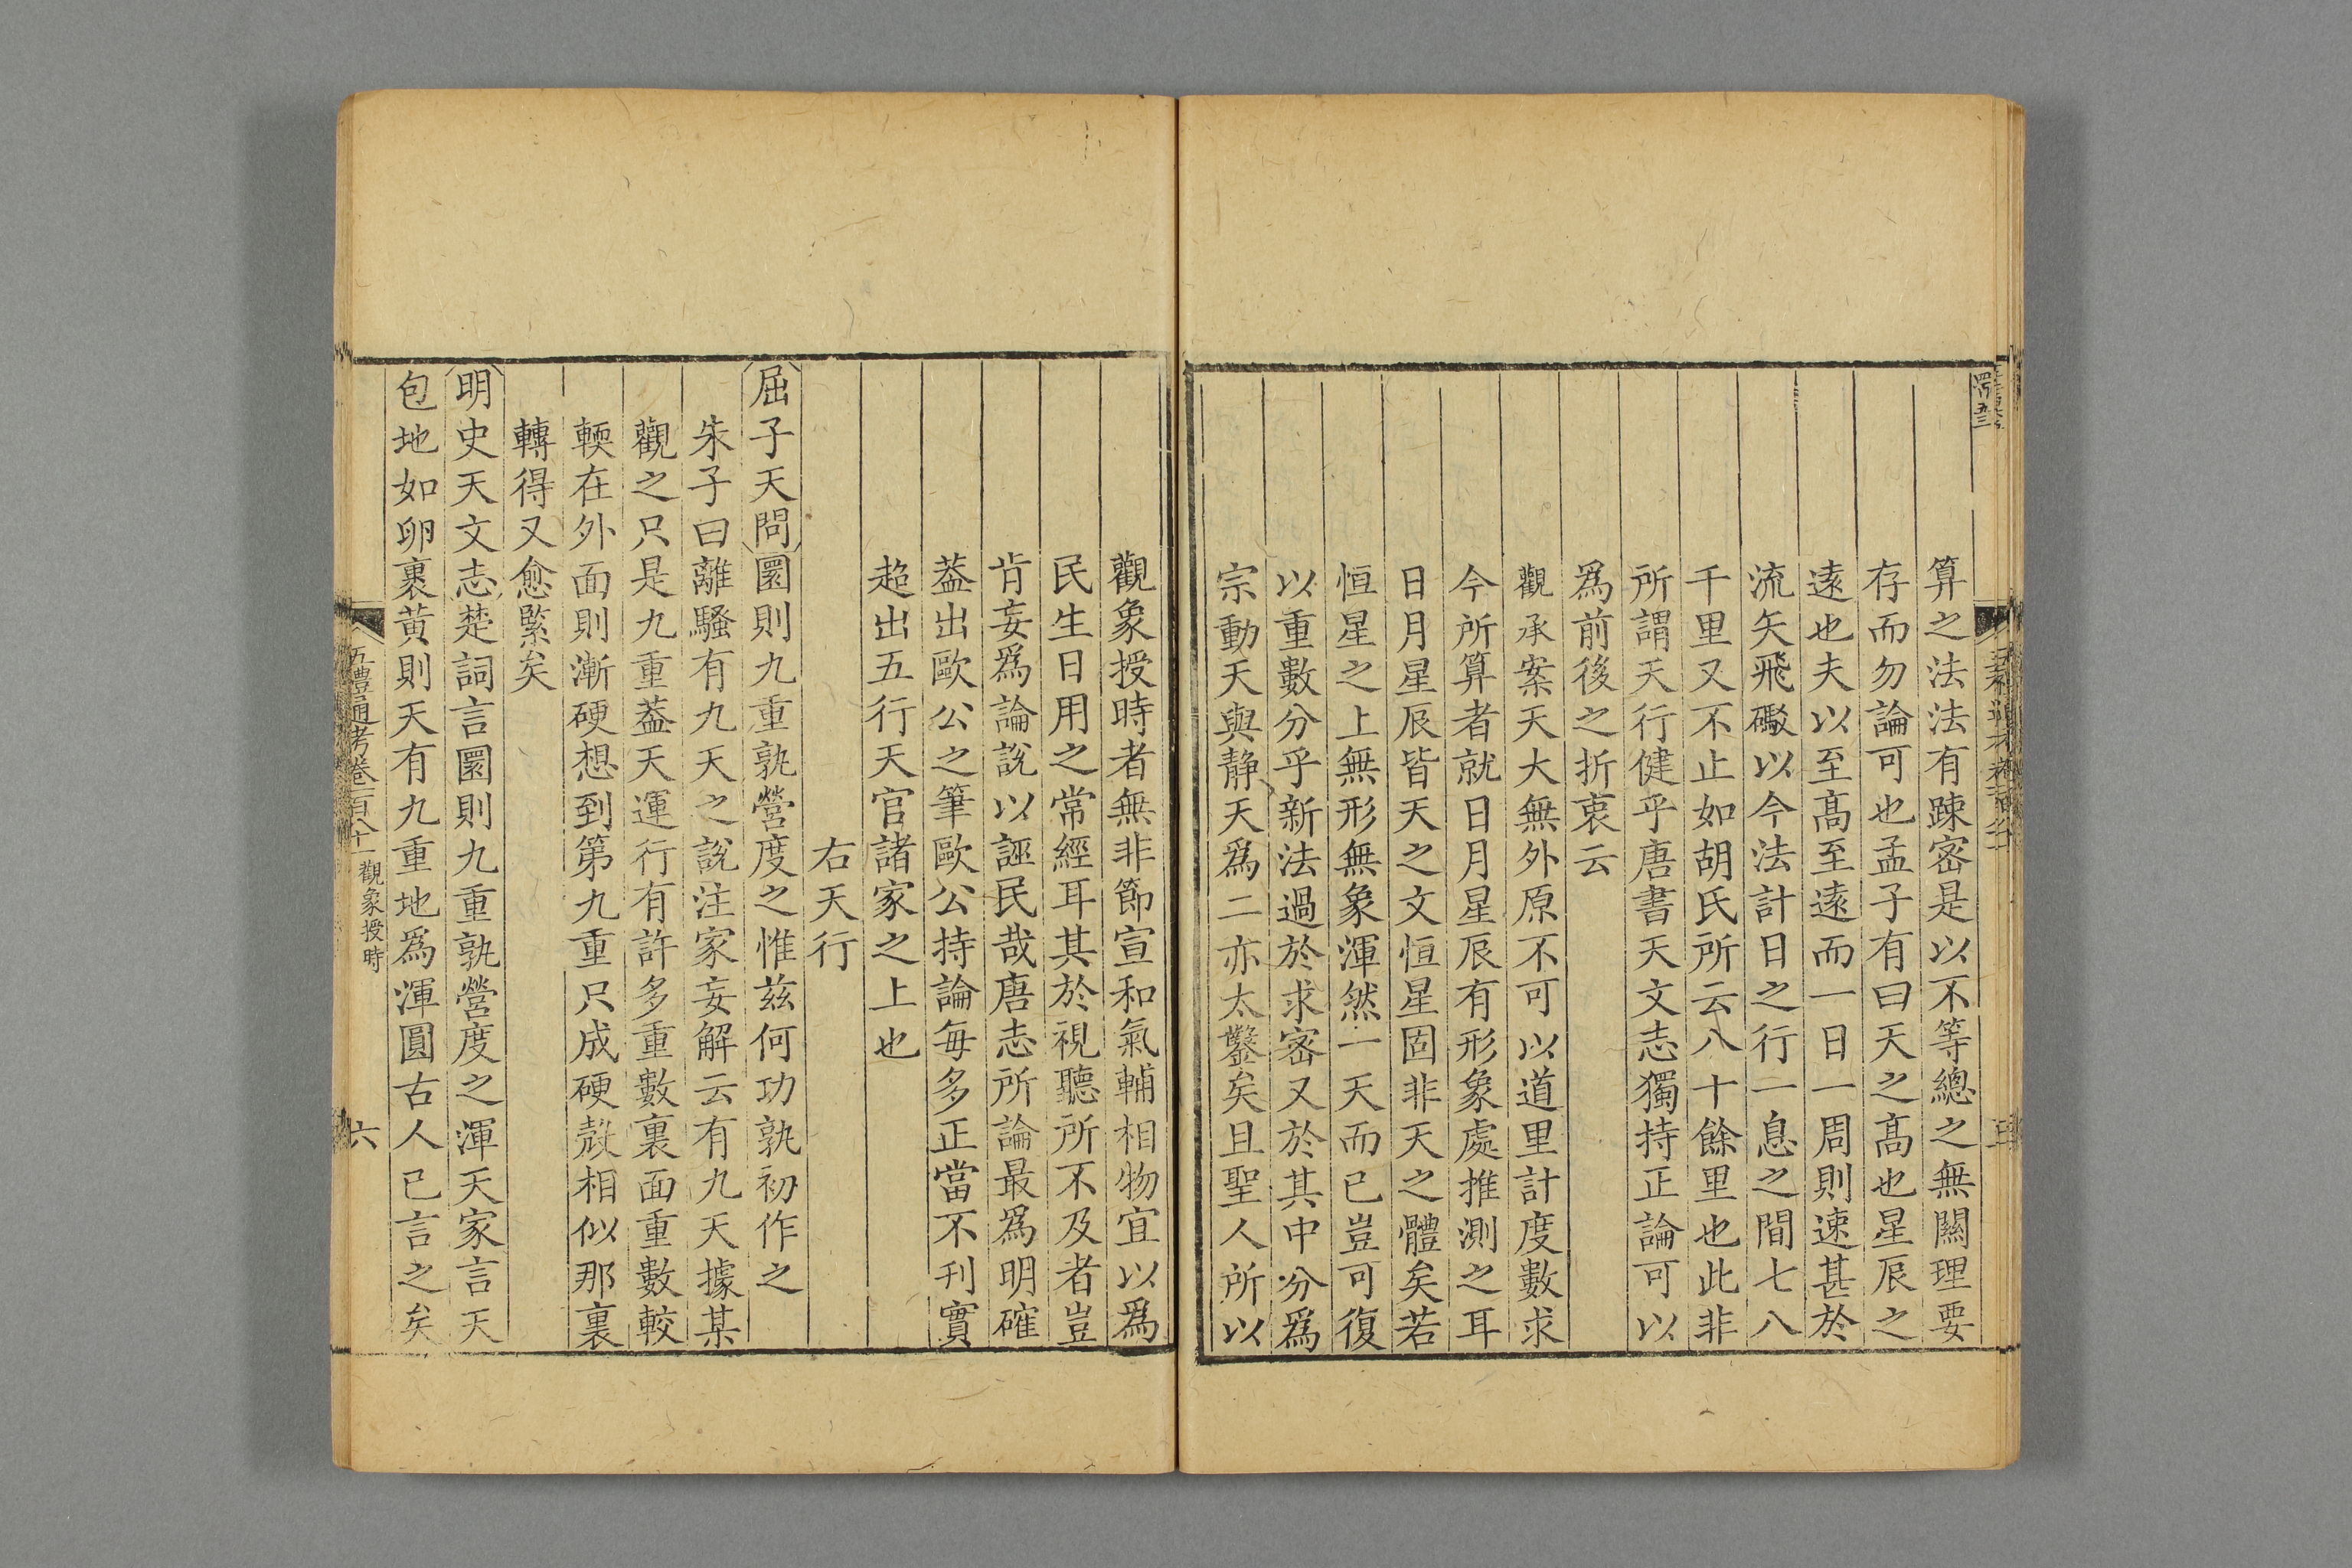 算之法法有踈宻是以不等總之無關理要
存而勿論可也孟子有曰天之髙也星辰之
逺也夫以至髙至逺而一日一周則速甚於
流矢飛礮以今法計日之行一息之間七八
千里又不止如胡氏所云八十餘里也此非
所謂天行健乎唐書天文志獨持正論可以
爲前後之折衷云
觀承案天大無外原不可以道里計度數求
今所算者就日月星辰有形象處推測之耳
日月星辰皆天之文恒星固非天之體矣若
恒星之上無形無象渾然一天而已豈可復
以重數分乎新法過於求宻又於其中分爲
宗動天與静天爲二亦太鑿矣且聖人所以
觀象授時者無非節宣和氣輔相物宜以爲
民生日用之常經耳其於視聽所不及者豈
肯妄爲論說以誣民哉唐志所論最爲明確
葢出歐公之筆歐公持論每多正當不刊實
超出五行天官諸家之上也
右天行
屈子天問圜則九重孰營度之惟兹何功孰初作之
朱子曰離騷有九天之說注家妄解云有九天據某
觀之只是九重葢天運行有許多重數裏面重數較
輭在外面則漸硬想到第九重只成硬殼相似那裏
轉得又愈緊矣
明史天文志楚詞言圜則九重孰營度之渾天家言天
包地如卵裹黄則天有九重地爲渾圓古人已言之矣
五禮通考卷一百八十一 觀象授時
六